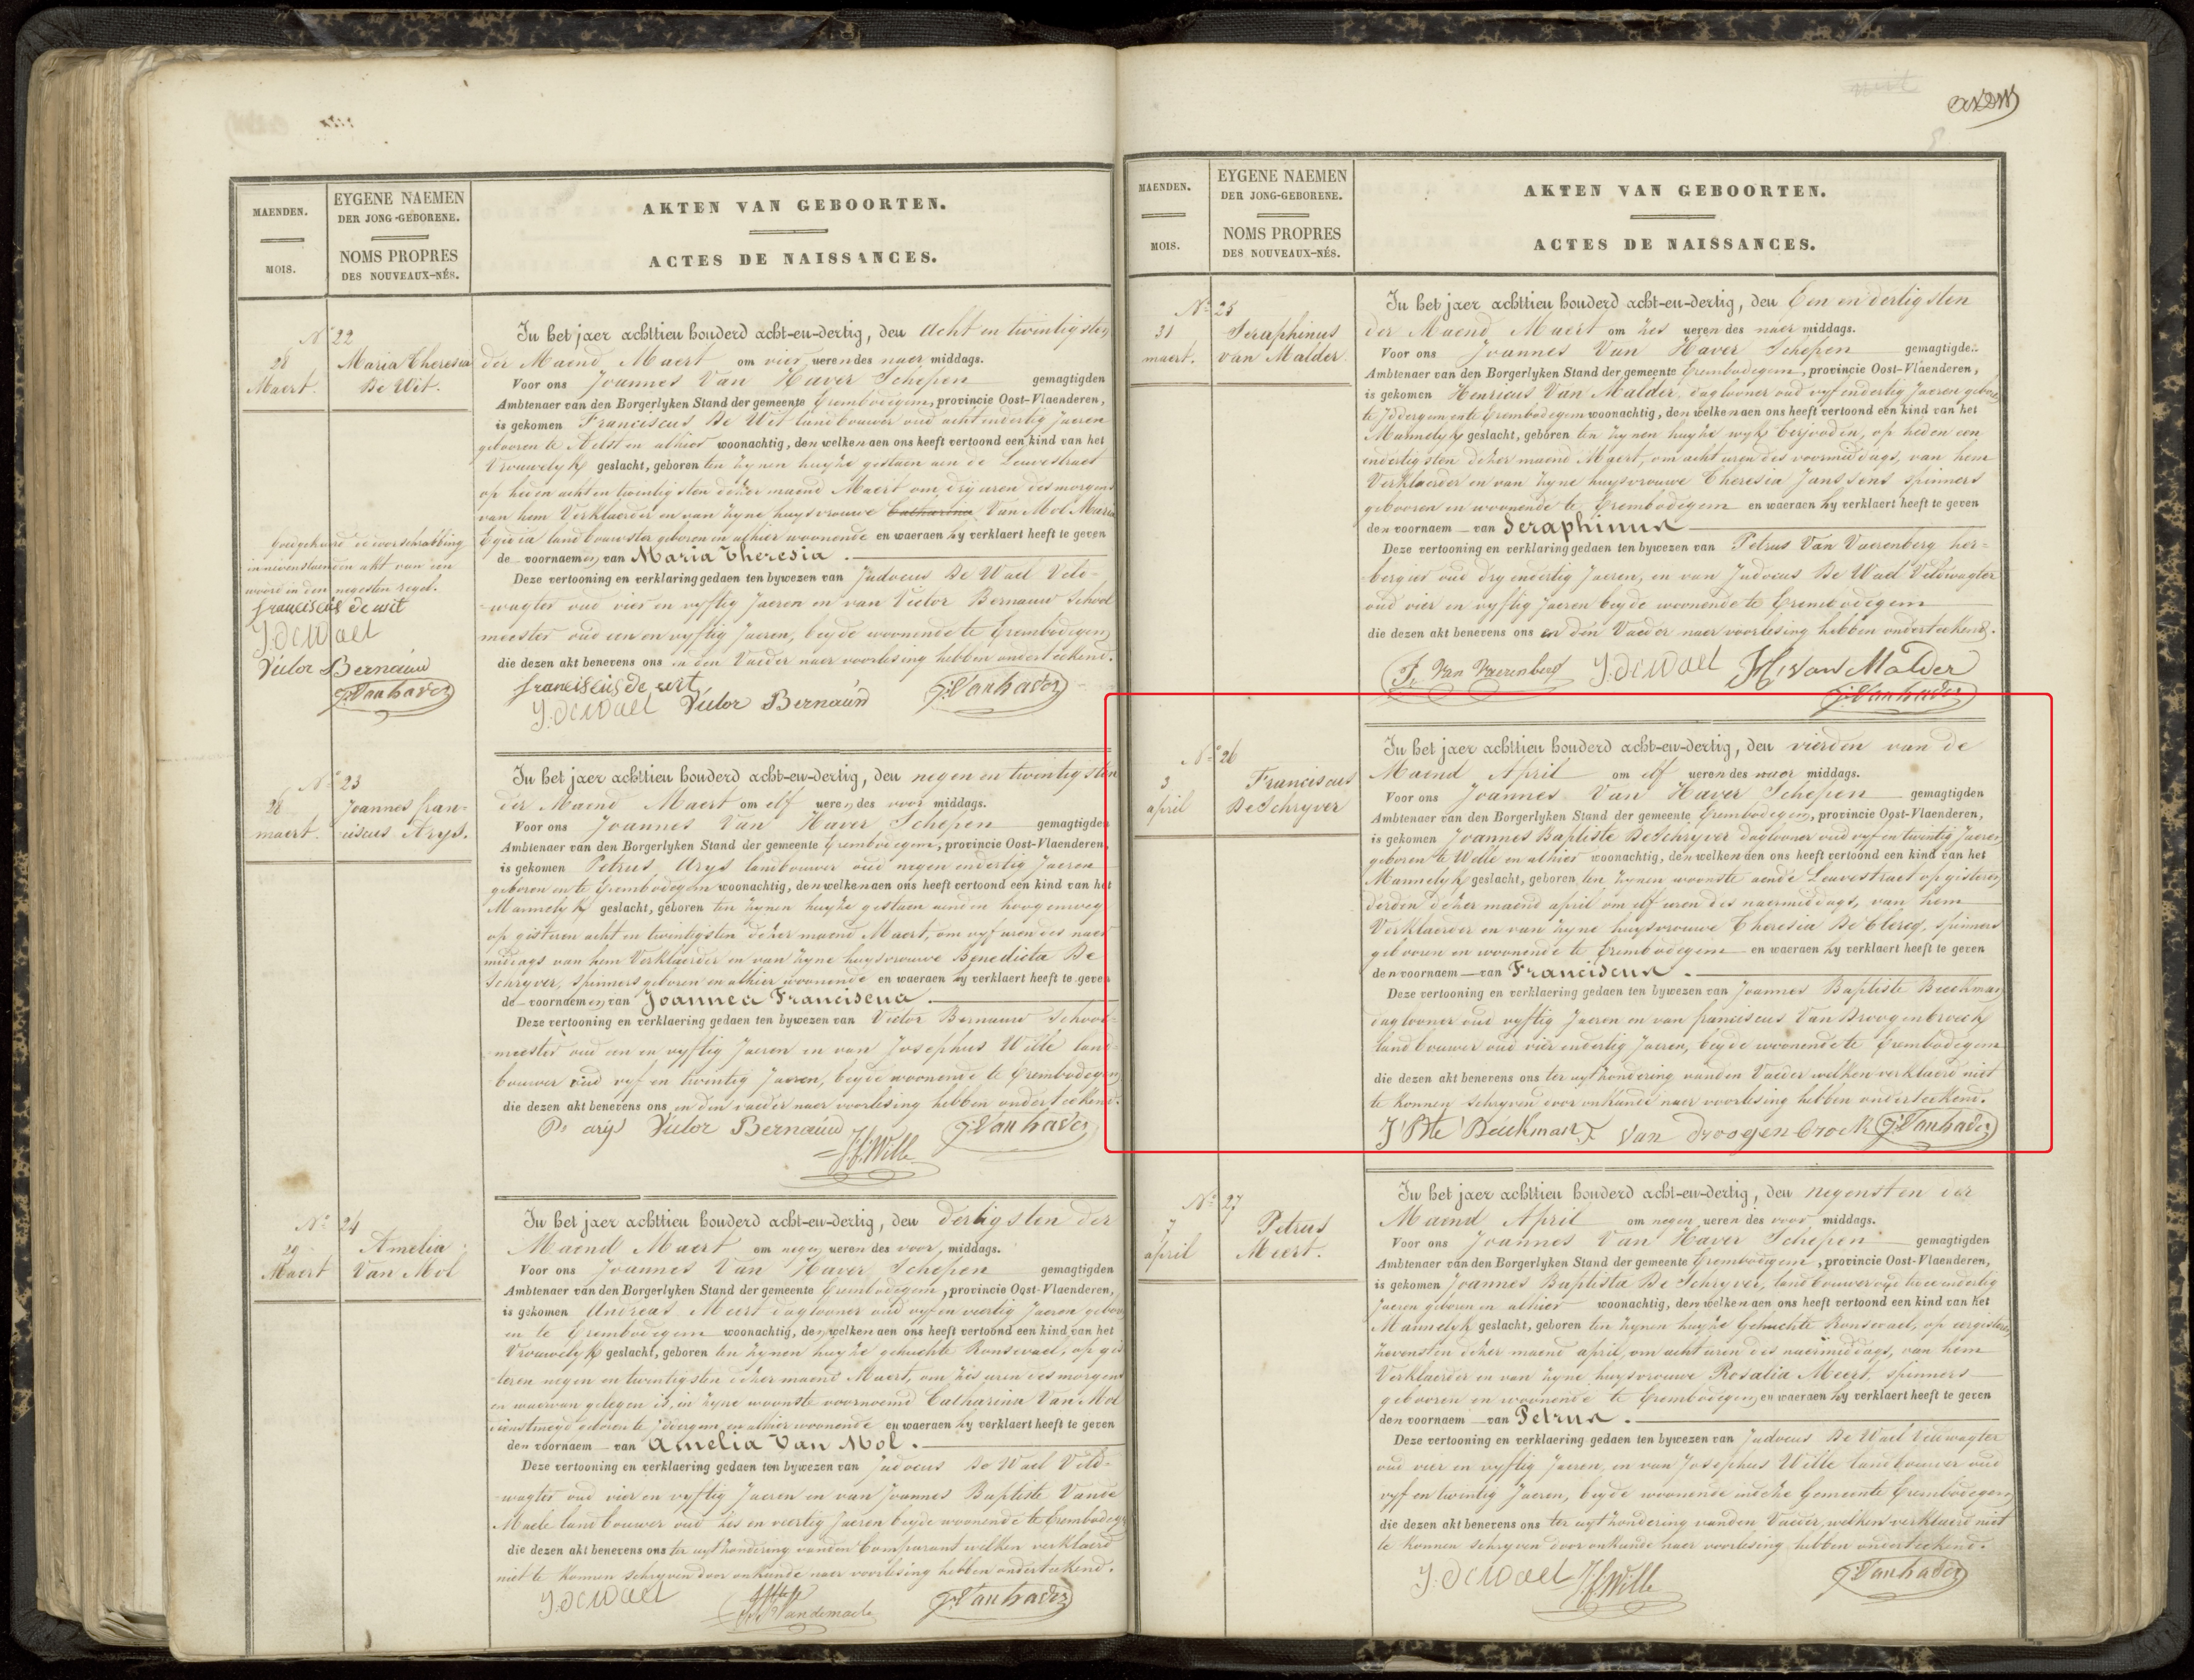 MAENDEN.
MOIS.
EYGENE NAEMEN
DER JONG-GEBORENE.
NOMS PROPRES
DES NOUVEAUX-NÉS.
AKTEN VAN GEBOORTEN.
ACTES DE NAISSANCES.
N° 22
28 Maert.
Maria Theresia
De Wit.
In het jaer achttien honderd acht-en-dertig, den Acht en twintigsten
der Maend Maert om vier ueren des naer middags.
Voor ons Joannes Van Haver Schepen gemagtigden
Ambtenaer van den Borgerlyken Stand der gemeente Grembodegem, provincie Oost-Vlaenderen,
is gekomen Franciscus De Wit landbouwer oud acht en dertig Jaeren
gebooren te Aelst en alhier woonachtig, den welken aen ons heeft vertoond een kind van het
Vrouwelyk geslacht, geboren ten zynen huyze gestaen aen de Leuvestraet
op heden acht en twintigsten dezer maend Maert om dry uren des morgens
van hem Verklaerder en van zyne huysvrouwe Catharina Van Mol Maria
Egidia landbouwster geboren en alhier woonende en waeraen hy verklaert heeft te geven
de voornaemen van Maria Theresia.
Deze vertooning en verklaring gedaen ten bywezen van Judocus De Wael Veld-
wagter oud vier en vyftig Jaeren en van Victor Bernauw School
meester oud een en vyftig Jaeren, beyde woonende te Grembodegem
die dezen akt benevens ons en den Vaeder naer voorlesing hebben onderteekend.
franciscus de wit
J. De Wael Victor Bernauw J. Van haver
Goedgekeurd de doorschrabbing
in nevenstaenden akt van een
woord in den negesten regel.
franciscus de wit
J. De Wael
Victor Bernauw
J. Van haver
N° 23
28 maert.
Joannes fran-
ciscus Arys.
In het jaer achttien honderd acht-en-dertig, den negen en twintigsten
der Maend Maert om elf ueren des voor middags.
Voor ons Joannes Van Haver Schepen gemagtigden
Ambtenaer van den Borgerlyken Stand der gemeente Grembodegem, provincie Oost-Vlaenderen,
is gekomen Petrus Arys landbouwer oud negen en dertig Jaeren
geboren en te Grembodegem woonachtig, den welken aen ons heeft vertoond een kind van het
Mannelyk geslacht, geboren ten zynen huyze gestaen aen den hoogenweg
op gisteren acht en twintigsten dezer maend Maert, om vyf uren des naer
middags van hem Verklaerder en van zyne huysvrouwe Benedicta De
Schryver, spinners geboren en alhier woonende en waeraen hy verklaert heeft te geven
de voornaemen van Joannes Franciscus.
Deze vertooning en verklaering gedaen ten bywezen van Victor Bernauw School-
meester oud een en vyftig Jaeren en van Josephus Wille land-
bouwer oud vyf en twintig Jaeren, beyde woonende te Grembodegem
die dezen akt benevens ons en den vaeder naer voorlesing hebben onderteekend.
Ps arys Victor Bernauw J. Van haver
J. f. Wille
N° 24
29 Maert
Amelia
Van Mol
In het jaer achttien honderd acht-en-dertig, den dertigsten der
Maend Maert om negen ueren des voor middags.
Voor ons Joannes Van Haver Schepen gemagtigden
Ambtenaer van den Borgerlyken Stand der gemeente Grembodegem, provincie Oost-Vlaenderen,
is gekomen Andreas Meert daglooner oud vyf en veertig Jaeren geboren
en te Grembodegem woonachtig, den welken aen ons heeft vertoond een kind van het
Vrouwelyk geslacht, geboren ten zynen huyze gehuchte Ronsevael, op gis
teren negen en twintigsten dezer maend Maert, om zes uren des morgens
en waervan gelegen is, in zyne woonste voornoemd Catharina Van Mol
dienstmeyd geboren te Iddergem en alhier woonende en waeraen hy verklaert heeft te geven
den voornaem van Amelia Van Mol.
Deze vertooning en verklaering gedaen ten bywezen van Judocus De Wael Veld-
wagter oud vier en vyftig Jaeren en van Joannes Baptiste Vande
Maele landbouwer oud zes en veertig Jaeren beyde woonende te Grembodegem
die dezen akt benevens ons ter uytzondering vanden Comparant welken verklaerd
niet te konnen schryven door onkunde naer voorlesing hebben onderteekend.
J. De Wael Vandemaele J. Van haver
MAENDEN.
MOIS.
EYGENE NAEMEN
DER JONG-GEBORENE.
NOMS PROPRES
DES NOUVEAUX-NÉS.
AKTEN VAN GEBOORTEN.
ACTES DE NAISSANCES.
N° 25
31 maert.
Seraphinus
van Malder.
In het jaer achttien honderd acht-en-dertig, den Een en dertigsten
der Maend Maert om zes ueren des naer middags.
Voor ons Joannes Van Haver Schepen gemagtigde
Ambtenaer van den Borgerlyken Stand der gemeente Grembodegem, provincie Oost-Vlaenderen,
is gekomen Henricus Van Malder, dagloner oud vyf en dertig Jaeren geboren
te Iddergem en te Grembodegem woonachtig, den welken aen ons heeft vertoond een kind van het
Mannelyk geslacht, geboren ten zynen huyze wyk, op heden een
en dertigsten dezer maend Maert, om acht uren des voormiddags, van hem
Verklaerder en van zyne huysvrouwe Theresia Janssens spinners
gebooren en woonende te Grembodegem en waeraen hy verklaert heeft te geven
den voornaem van Seraphinus
Deze vertooning en verklaring gedaen ten bywezen van Petrus Van Vaerenberg her-
bergier oud dry en dertig Jaeren, en van Judocus De Wael Veldwagter
oud vier en vyftig Jaeren beyde woonende te Grembodegem
die dezen akt benevens ons en den Vaeder naer voorlesing hebben onderteekend.
P. Van Vaerenberg J. De Wael H. van Malder
J. Van haver
N° 26
3 april
Franciscus
De Schryver
In het jaer achttien honderd acht-en-dertig, den vierden van de
Maend April om elf ueren des voor middags.
Voor ons Joannes Van Haver Schepen gemagtigden
Ambtenaer van den Borgerlyken Stand der gemeente Grembodegem, provincie Oost-Vlaenderen,
is gekomen Joannes Baptiste De Schryver dagloner oud vyf en twintig Jaeren
geboren te Welle en alhier woonachtig, den welken aen ons heeft vertoond een kind van het
Mannelyk geslacht, geboren ten zynen woonste aen de Leuvestraet op gisteren
derden dezer maend april om elf uren des naermiddags, van hem
Verklaerder en van zyne huysvrouwe Theresia De Clercq, spinners
gebooren en woonende te Grembodegem en waeraen hy verklaert heeft te geven
den voornaem van Franciscus.
Deze vertooning en verklaering gedaen ten bywezen van Joannes Baptiste Beeckman
dagloner oud vyftig Jaeren en van franciscus Van Droogenbroeck
landbouwer oud vier en dertig Jaeren, beyde woonende te Grembodegem
die dezen akt benevens ons ter uytzondering vanden Vaeder welken verklaerd niet
te konnen schryven door onkunde naer voorlesing hebben onderteekend.
J Bte Beeckman F van droogenbroeck J. Van haver
N° 27
7 april
Petrus
Meert.
In het jaer achttien honderd acht-en-dertig, den negensten der
Maend April om negen ueren des voor middags.
Voor ons Joannes Van Haver Schepen gemagtigden
Ambtenaer van den Borgerlyken Stand der gemeente Grembodegem, provincie Oost-Vlaenderen,
is gekomen Joannes Baptista De Schryver, landbouwer oud twee en dertig
Jaeren geboren en alhier woonachtig, den welken aen ons heeft vertoond een kind van het
Mannelyk geslacht, geboren ten zynen huyze Gehuchte Ronsevael, op eergisteren
zevensten dezer maend april, om acht uren des naermiddags, van hem
Verklaerder en van zyne huysvrouwe Rosalia Meert, spinners
gebooren en woonende te Grembodegem, en waeraen hy verklaert heeft te geven
den voornaem van Petrus.
Deze vertooning en verklaering gedaen ten bywezen van Judocus De Wael Veldwagter
oud vier en vyftig Jaeren, en van Josephus Wille landbouwer oud
vyf en twintig Jaeren, beyde woonende in deze Gemeente Grembodegem
die dezen akt benevens ons ter uytzondering vanden Vaeder, welken verklaerd niet
te konnen schryven door onkunde naer voorlesing hebben onderteekend.
J. De Wael J. f. Wille J. Van haver